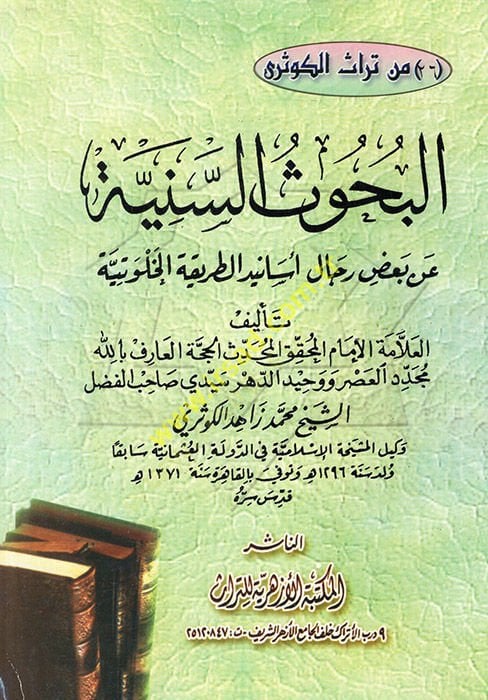 (٢٦) من تراث الكوثرى
البُحُوثُ السَّنِيَّة
عَن بَعضِ رِجَال أسَانيد الطريقَة الخَلْوَتيَّة
تأليف
العَلامَة الإمَام المحقِق المحُدِّث الحجَّة العَارف بالله
مُجَدِّد العَصْر وَوَحِيد الدّهْر سَيِّدي صَاحِبُ الفَضْل
الشيخ محمَّد زَاهد الكوثَري
وَكيل المَشيَخة الإسْلاميَّة في الدَّولة العُثمَانيَّة سَابقًا
وُلِدَ سَنَة ١٢٩٦هـ وَتوفيَ بالقَاهِرة سَنَة ١٣٧١هـ
قدّسَ سِرّه
الناشر
المكتبة الأزهرية للتراث
٩ درب الأتراك خلف الجامع الأزهر الشريف - ت: ٢٥١٢٠٨٤٧